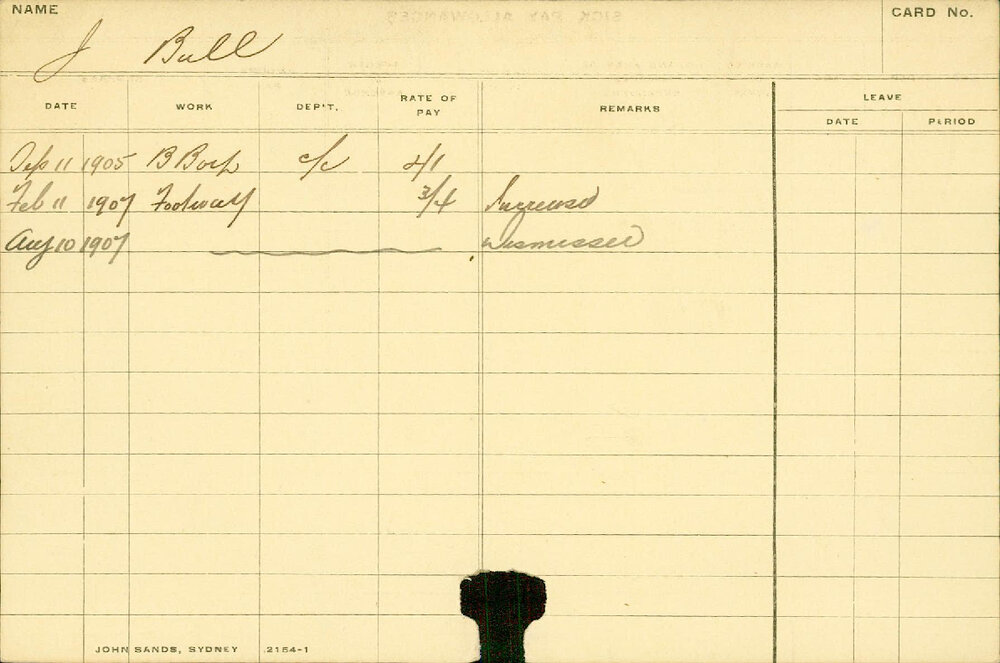 NAME
CARD No.
J Bull
DATE WORK DEP'T. RATE OF PAY REMARKS LEAVE
DATE PERIOD
Sep 11 1905 B Boy c/c 2/1
Feb 11 1907 Footway 3/4 Increased
Aug 10 1907 Dismissed
JOHN SANDS, SYDNEY 2154-1